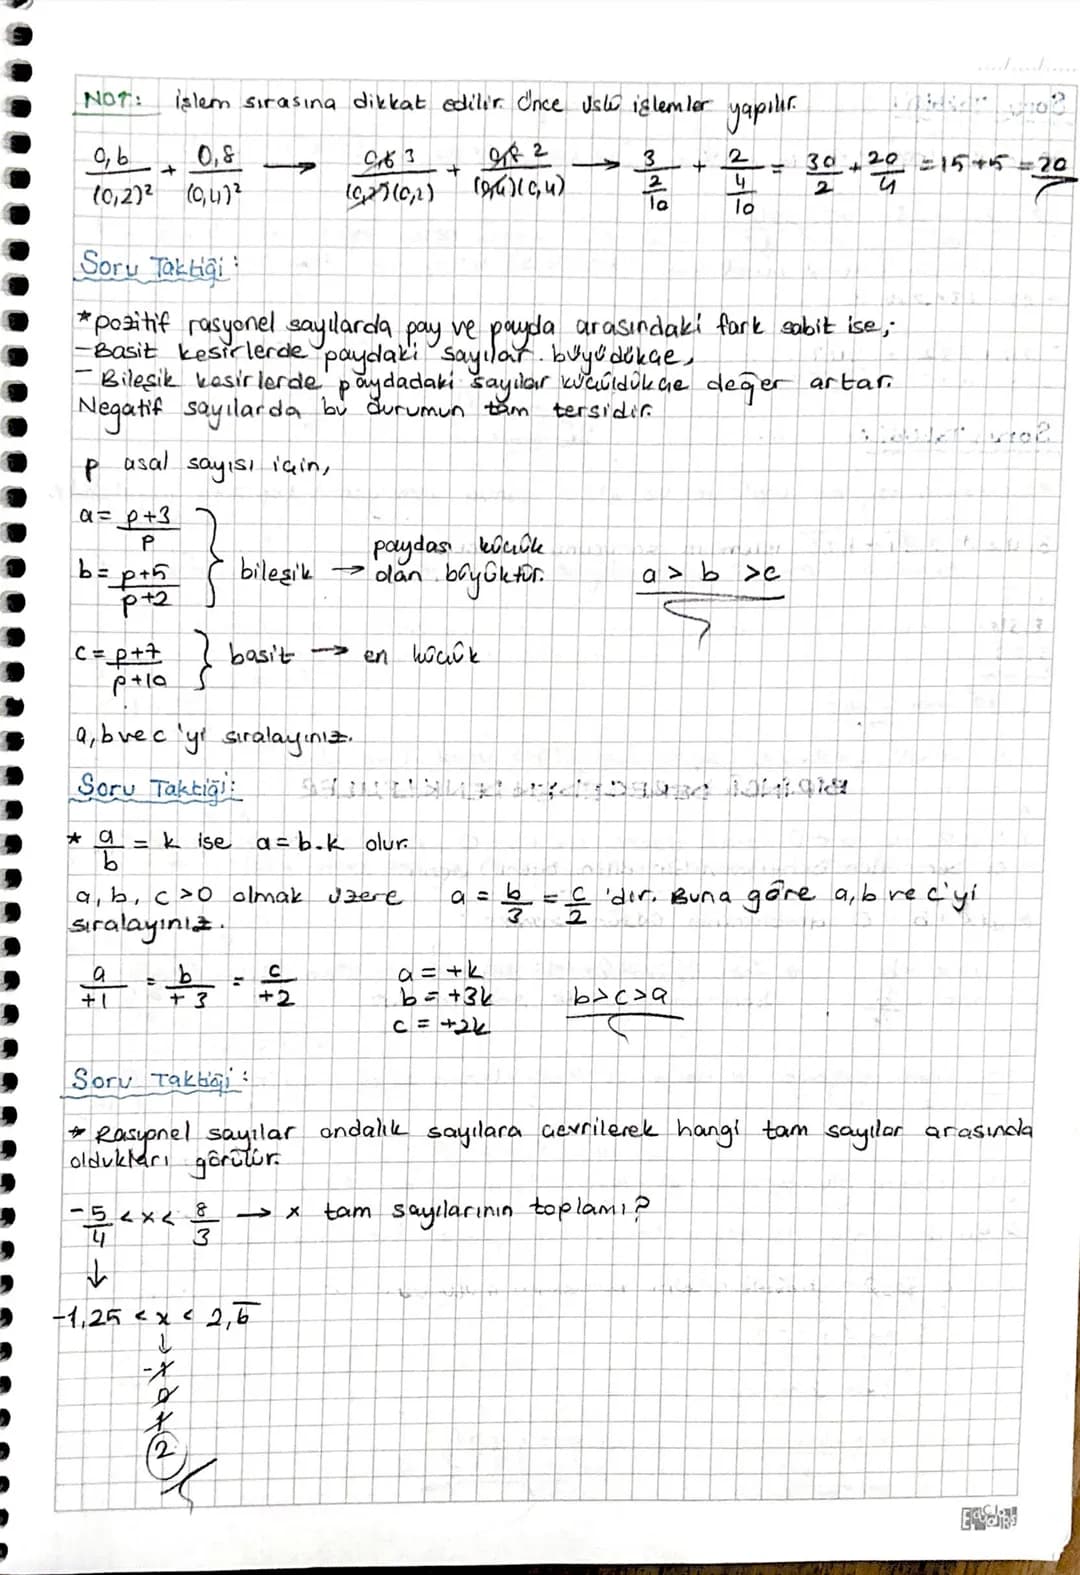 NOT: işlem sırasına dikkat edilir. Önce üslü işlemler yapılır.
0,6/(0,2)² + 0,8/(0,4)² → 0,6 3/(0,2)(0,2) + 0,8 2/(0,4)(0,4) → 3/(2/10) + 2/(4/10) = 30/2 + 20/4 = 15+5 = 20
Soru Taktiği:
*pozitif rasyonel sayılarda pay ve payda arasındaki fark sabit ise;
-Basit kesirlerde paydaki sayılar büyüdükçe,
- Bileşik kesirlerde paydadaki sayılar küçüldükçe değer artar.
Negatif sayılarda bu durumun tam tersidir.
p asal sayısı için,
a = p+3/p
b = p+5/p+2 } bileşik → paydası küçük olan büyüktür. a > b > c
c = p+7/p+10 } basit → en küçük
a, b ve c 'yi sıralayınız.
Soru Taktiği:
* a/b = k ise a = b.k olur.
a, b, c >0 olmak üzere a = b/3 = c/2 'dir. Buna göre a, b ve c'yi
sıralayınız.
a/+1 = b/+3 = c/+2
a = +k
b = +3k b>c>a
c = +2k
Soru Taktiği:
* Rasyonel sayılar ondalık sayılara çevrilerek hangi tam sayılar arasında
oldukları görülür.
-5/4 < x < 8/3 → x tam sayılarının toplamı?
↓
-1,25 < x < 2,6̅
↓
-1
0
1
2